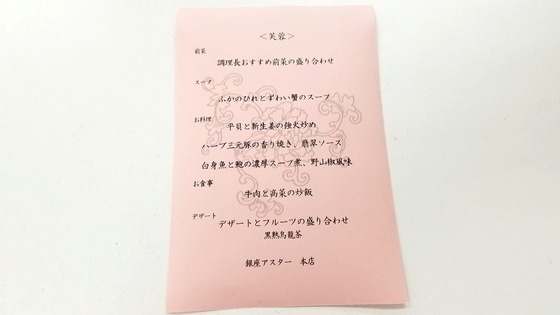 ＜芙蓉＞
前菜
調理長おすすめ前菜の盛り合わせ
スープ
ふかのひれとずわい蟹のスープ
お料理
平貝と新生姜の強火炒め
ハーブ三元豚の香り焼き、翡翠ソース
白身魚と鮑の濃厚スープ煮、野山椒風味
お食事
牛肉と高菜の炒飯
デザート
デザートとフルーツの盛り合わせ
黒熟烏龍茶
銀座アスター　本店